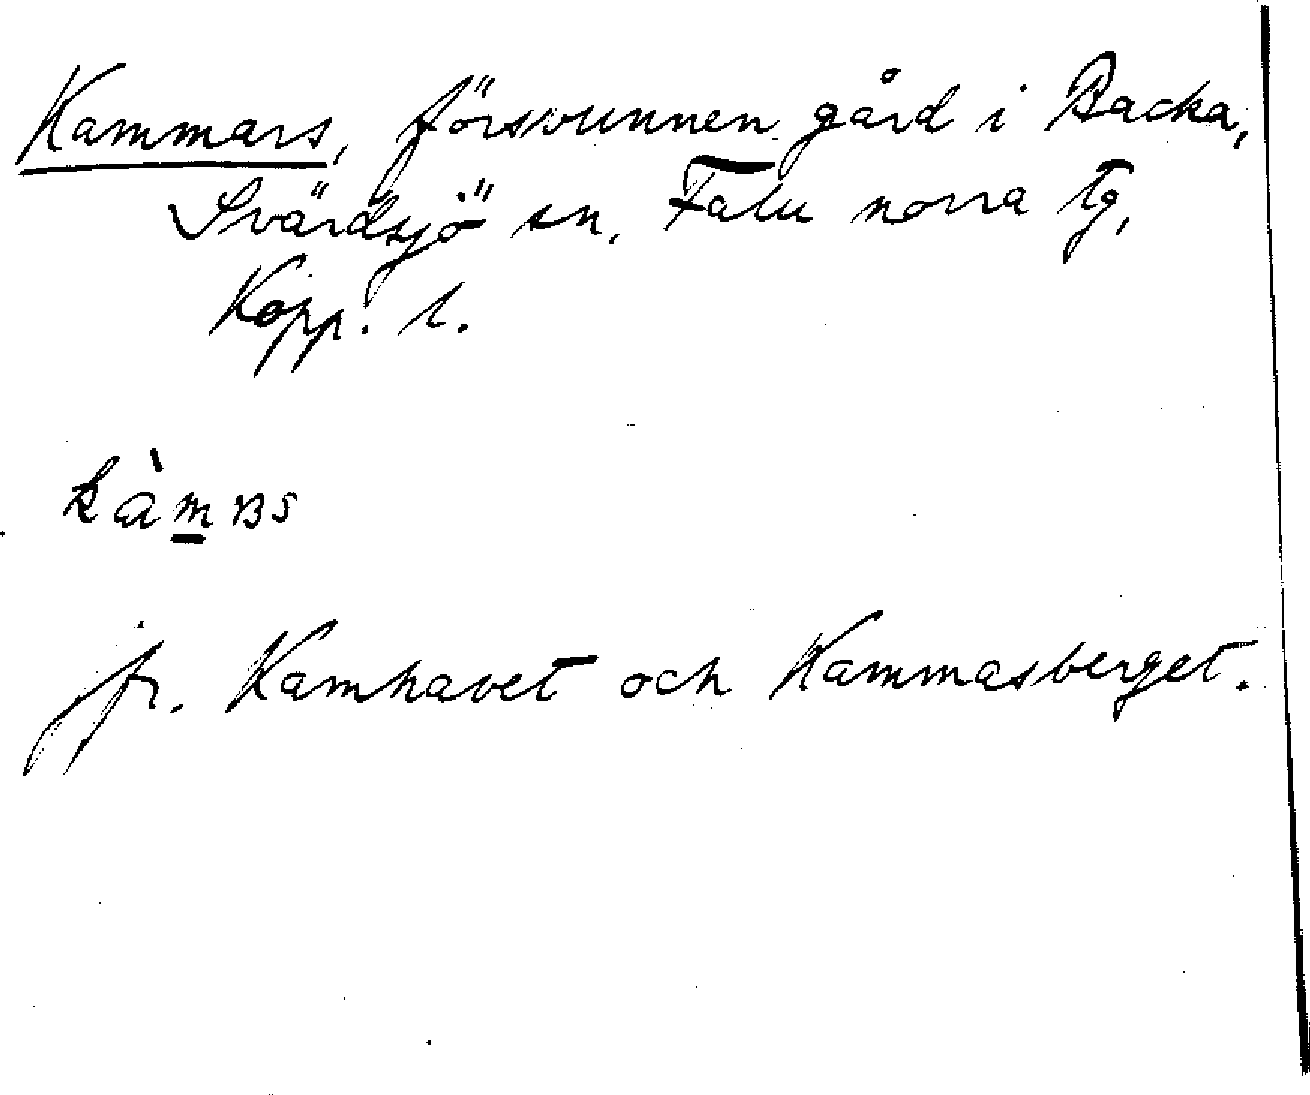 Kammars, försvunnen gård i Backa,
Svärdsjö sn, Falu norra tg,
Kopp. l.
jfr. Kamhavet och Kammasberget.